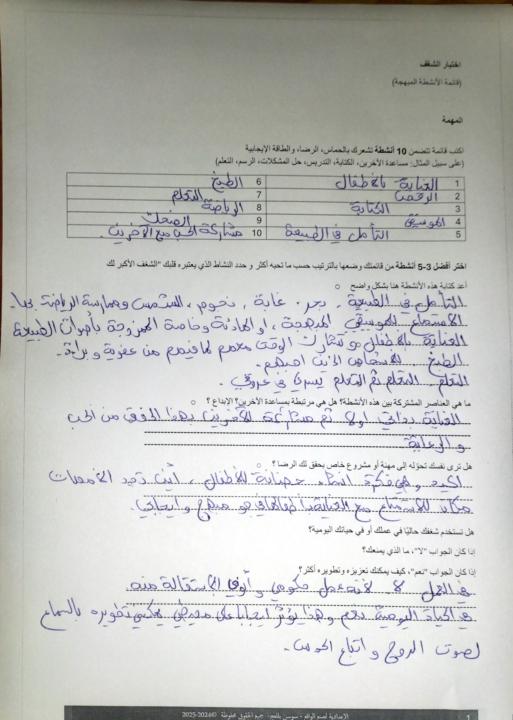 اختبار الشغف
(قائمة الأنشطة المبهجة)
المهمة
اكتب قائمة تتضمن 10 أنشطة تشعرك بالحماس، الرضا، والطاقة الإيجابية
(على سبيل المثال: مساعدة الآخرين، الكتابة، التدريس، حل المشكلات، الرسم، التعلم)
1 العناية بالأطفال 6 الطبخ
2 الرقص 7 التعلم
3 الكتابة 8 الرياضة
4 الموسيقى 9 الضحك
5 التأمل في الطبيعة 10 مشاركة الحب مع الآخرين
اختر أفضل 3-5 أنشطة من قائمتك وضعها بالترتيب حسب ما تحبه أكثر و حدد النشاط الذي يعتبره قلبك "الشغف الأكبر لك
أعد كتابة هذه الأنشطة هنا بشكل واضح
التأمل في الطبيعة، بحر، غابة، نجوم، الشمس وممارسة الرياضة بها.
الاستماع للموسيقى المبهجة، او الهادئة وخاصة الممزوجة بأصوات الطبيعة
العناية بالأطفال ومشاركة الوقت معهم لما فيهم من عفوية وبراءة.
الطبخ للأشخاص الذين احبهم.
التعلم، التعلم ثم التعلم يسري في عروقي.
ما هي العناصر المشتركة بين هذه الأنشطة؟ هل هي مرتبطة بمساعدة الآخرين؟ الإبداع؟
العناية بذاتي اولا ثم مشاركة الآخرين بهذا الدفق من الحب
و الرعاية
هل ترى نفسك تحوّله إلى مهنة أو مشروع خاص يحقق لك الرضا؟
اكيد وهي فكرة انشاء حضانة للأطفال، أين تجد الأمهات
مكانا للاستمتاع مع العناية بأطفالها في جو مبهج وايجابي.
هل تستخدم شغفك حاليًا في عملك أو في حياتك اليومية؟
إذا كان الجواب "لا"، ما الذي يمنعك؟
إذا كان الجواب "نعم"، كيف يمكنك تعزيزه وتطويره أكثر؟
في العمل لا لأنه عمل حكومي وأنوي الاستقالة منه
في الحياة اليومية نعم وهذا يؤثر ايجابا على محيطي يمكنني تطويره بالسماع
لصوت الروح و اتباع الحدس.
2025-2024©
1